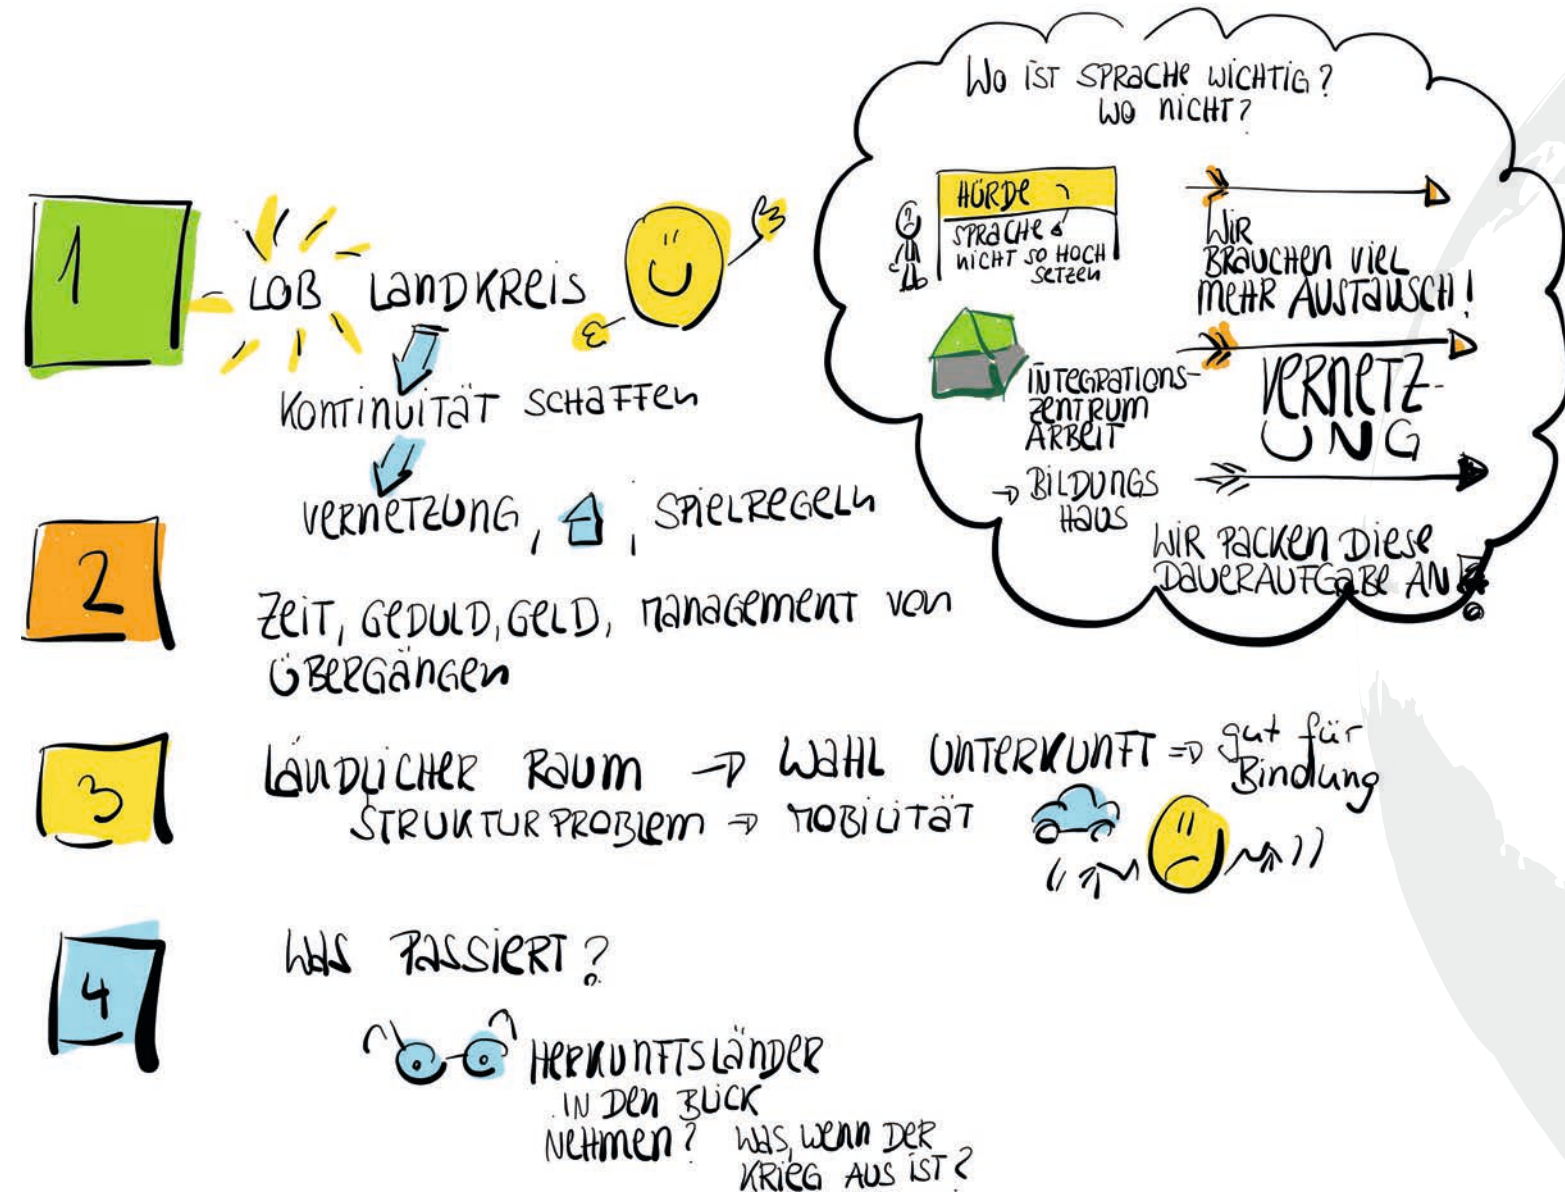 1
LOB LANDKREIS
KONTINUITÄT SCHAFFEN
VERNETZUNG, , SPIELREGELN
2
ZEIT, GEDULD, GELD, MANAGEMENT VON
ÜBERGÄNGEN
3
LÄNDLICHER RAUM → WAHL UNTERKUNFT ⇒ gut für
Bindung
STRUKTURPROBLEM ⇒ MOBILITÄT
4
WAS PASSIERT?
HERKUNFTSLÄNDER
IN DEN BLICK
NEHMEN?
WAS, WENN DER
KRIEG AUS IST?
WO IST SPRACHE WICHTIG?
WO NICHT?
HÜRDE
SPRACHE
NICHT SO HOCH
SETZEN
INTEGRATIONS-
ZENTRUM
ARBEIT
→ BILDUNGS
HAUS
WIR
BRAUCHEN VIEL
MEHR AUSTAUSCH!
VERNETZ-
UNG
WIR PACKEN DIESE
DAUERAUFGABE AN!